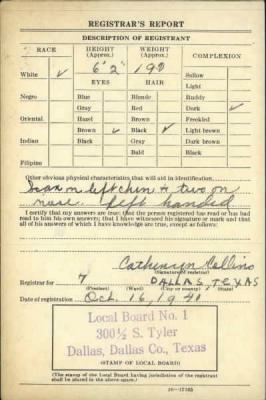 REGISTRAR'S REPORT
DESCRIPTION OF REGISTRANT
RACE
HEIGHT (Approx.)
WEIGHT (Approx.)
COMPLEXION
6' 2"
190
White ✓
EYES
HAIR
Sallow
Light
Negro
Blue
Blonde
Ruddy
Gray
Red
Dark ✓
Oriental
Hazel
Brown
Freckled
Brown ✓
Black ✓
Light brown
Indian
Black
Gray
Dark brown
Bald
Black
Filipino
Other obvious physical characteristics that will aid in identification
Scar on left chin & two on
nose. Left handed
I certify that my answers are true; that the person registered has read or has had
read to him his own answers; that I have witnessed his signature or mark and that
all of his answers of which I have knowledge are true, except as follows:
(Signature of registrar)
Registrar for 7 DALLAS, TEXAS
(Precinct) (Ward) (City or county) (State)
Date of registration Oct. 16, 1940
Local Board No. 1
300½ S. Tyler
Dallas, Dallas Co., Texas
(STAMP OF LOCAL BOARD)
(The stamp of the Local Board having jurisdiction of the registrant
shall be placed in the above space.)